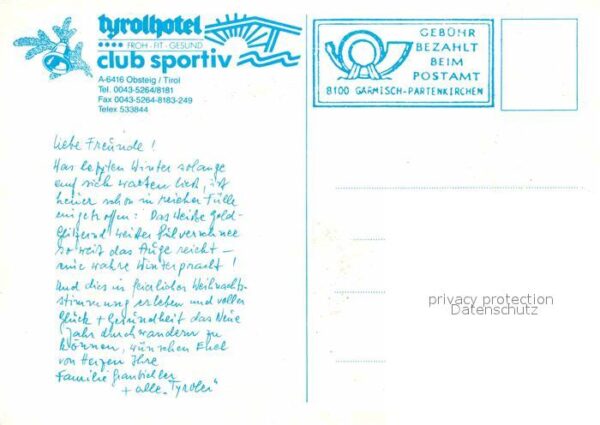 tyrolhotel
FROH - FIT - GESUND
club sportiv
A-6416 Obsteig / Tirol
Tel. 0043-5264/8181
Fax 0043-5264-8183-249
Telex 533844
GEBÜHR
BEZAHLT
BEIM
POSTAMT
8100 GARMISCH-PARTENKIRCHEN
Liebe Freunde!
Was letzten Winter solange
auf sich warten ließ, ist
heuer schon in reicher Fülle
eingetroffen: Das Weiße Gold -
Glitzernd weißer Pulverschnee
so weit das Auge reicht -
eine wahre Winterpracht!
Und dies in feierlicher Weihnachts-
stimmung erleben und voller
Glück + Gesundheit das Neue
Jahr durchwandern zu
können, wünschen Euch
von Herzen Ihre
Familie
+ alle "Tyroler"
privacy protection
Datenschutz